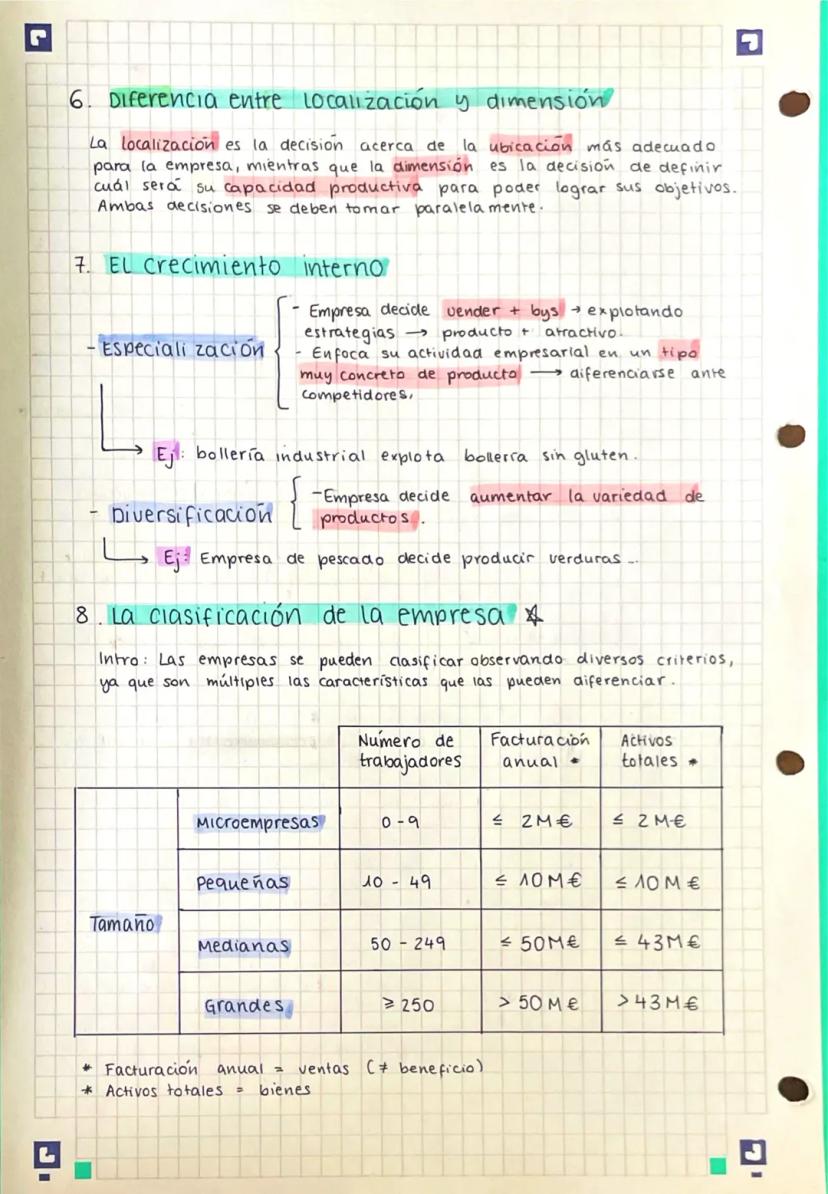 6. Diferencia entre localización y dimensión
La localización es la decisión acerca de la ubicación más adecuado
para la empresa, mientras que la dimensión es la decisión de definir
cuál será su capacidad productiva para poder lograr sus objetivos.
Ambas decisiones se deben tomar paralelamente.
7. El crecimiento interno
- Especialización
- Empresa decide vender + bys → explotando
estrategias → producto + atractivo.
- Enfoca su actividad empresarial en un tipo
muy concreto de producto → diferenciarse ante
competidores.
Ej: bollería industrial explota bollería sin gluten.
- Diversificación
- Empresa decide aumentar la variedad de
productos.
Ej: Empresa de pescado decide producir verduras...
8. La clasificación de la empresa ☆
Intro: Las empresas se pueden clasificar observando diversos criterios,
ya que son múltiples las características que las pueden diferenciar.
Número de trabajadores Facturación anual * Activos totales *
Tamaño
Microempresas 0-9 ≤ 2M€ ≤ 2M€
Pequeñas 10 - 49 ≤ 10M€ ≤ 10M€
Medianas 50 - 249 ≤ 50M€ ≤ 43M€
Grandes ≥ 250 > 50M€ > 43M€
* Facturación anual = ventas (≠ beneficio)
* Activos totales = bienes